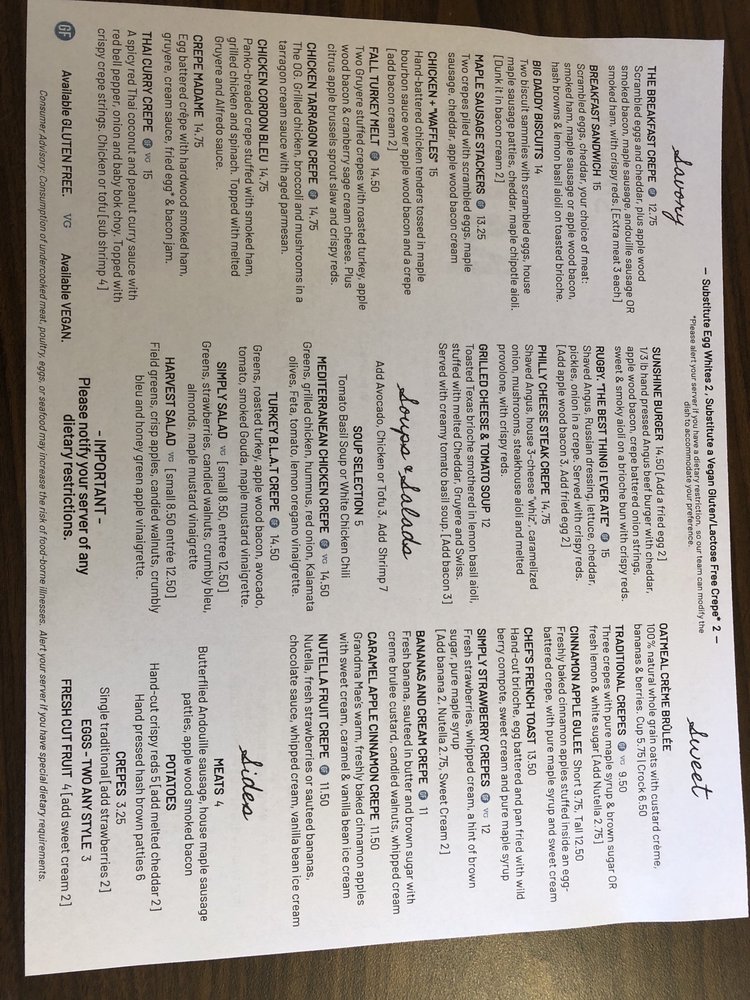 — Substitute Egg Whites 2 , Substitute a Vegan Gluten/Lactose Free Crepe* 2 —
*Please alert your server if you have a dietary restriction, so our team can modify the
dish to accommodate your preference.
Savory
THE BREAKFAST CREPE GF 12.75
Scrambled eggs and cheddar, plus apple wood
smoked bacon, maple sausage, andouille sausage OR
smoked ham, with crispy reds. [Extra meat 3 each]
BREAKFAST SANDWICH 15
Scrambled eggs, cheddar, your choice of meat:
smoked ham, maple sausage or apple wood bacon,
hash browns & lemon basil aioli on toasted brioche.
BIG DADDY BISCUITS 14
Two biscuit sammies with scrambled eggs, house
maple sausage patties, cheddar, maple chipotle aioli.
[Dunk it in bacon cream 2]
MAPLE SAUSAGE STACKERS GF 13.25
Two crepes piled with scrambled eggs, maple
sausage, cheddar, apple wood bacon cream
CHICKEN + "WAFFLES" 15
Hand-battered chicken tenders tossed in maple
bourbon sauce over apple wood bacon and a crepe
[add bacon cream 2]
FALL TURKEY MELT GF 14.50
Two Gruyere stuffed crepes with roasted turkey, apple
wood bacon & cranberry sage cream cheese. Plus
citrus apple brussels sprout slaw and crispy reds.
CHICKEN TARRAGON CREPE GF 14.75
The OG. Grilled chicken, broccoli and mushrooms in a
tarragon cream sauce with aged parmesan.
CHICKEN CORDON BLEU 14.75
Panko-breaded crepe stuffed with smoked ham,
grilled chicken and spinach. Topped with melted
Gruyere and Alfredo sauce.
CREPE MADAME 14.75
Egg battered crêpe with hardwood smoked ham,
gruyere, cream sauce, fried egg* & bacon jam.
THAI CURRY CREPE GF VG 15
A spicy red Thai coconut and peanut curry sauce with
red bell pepper, onion and baby bok choy. Topped with
crispy crepe strings. Chicken or tofu [sub shrimp 4]
SUNSHINE BURGER 14.50 [Add a fried egg 2]
1/3 lb hand pressed Angus beef burger with cheddar,
apple wood bacon, crepe battered onion strings,
sweet & smoky aioli on a brioche bun with crispy reds.
RUGBY. "THE BEST THING I EVER ATE" GF 15
Shaved Angus, Russian dressing, lettuce, cheddar,
pickles, onion in a crepe. Served with crispy reds.
[Add apple wood bacon 3, Add fried egg 2]
PHILLY CHEESE STEAK CREPE 14.75
Shaved Angus, house 3-cheese "whiz", caramelized
onion, mushrooms, steakhouse aioli and melted
provolone, with crispy reds.
GRILLED CHEESE & TOMATO SOUP 12
Toasted Texas brioche smothered in lemon basil aioli,
stuffed with melted Cheddar, Gruyere and Swiss.
Served with creamy tomato basil soup. [Add bacon 3]
Soups & Salads
Add Avocado, Chicken or Tofu 3, Add Shrimp 7
SOUP SELECTION 5
Tomato Basil Soup or White Chicken Chili
MEDITERRANEAN CHICKEN CREPE GF 14.50
Greens, grilled chicken, hummus, red onion, Kalamata
olives, Feta, tomato, lemon oregano vinaigrette.
TURKEY B.L.A.T CREPE GF 14.50
Greens, roasted turkey, apple wood bacon, avocado,
tomato, smoked Gouda, maple mustard vinaigrette.
SIMPLY SALAD VG [small 8.50, entree 12.50]
Greens, strawberries, candied walnuts, crumbly bleu,
almonds, maple mustard vinaigrette
HARVEST SALAD VG [small 8.50 entrée 12.50]
Field greens, crisp apples, candied walnuts, crumbly
bleu and honey green apple vinaigrette.
– IMPORTANT –
Please notify your server of any
dietary restrictions.
Sweet
OATMEAL CRÈME BRÛLÉE
100% natural whole grain oats with custard crème,
bananas & berries. Cup 5.75 | Crock 6.50
TRADITIONAL CREPES GF VG 9.50
Three crepes with pure maple syrup & brown sugar OR
fresh lemon & white sugar [Add Nutella 2.75]
CINNAMON APPLE GULEE Short 9.75, Tall 12.50
Freshly baked cinnamon apples stuffed inside an egg-
battered crepe, with pure maple syrup and sweet cream
CHEFS FRENCH TOAST 13.50
Hand-cut brioche, egg battered and pan fried with wild
berry compote, sweet cream and pure maple syrup
SIMPLY STRAWBERRY CREPES GF VG 12
Fresh strawberries, whipped cream, a hint of brown
sugar, pure maple syrup
[Add banana 2, Nutella 2.75, Sweet Cream 2]
BANANAS AND CREAM CREPE GF 11
Fresh banana, sauteed in butter and brown sugar with
creme brulee custard, candied walnuts, whipped cream
CARAMEL APPLE CINNAMON CREPE 11.50
Grandma Mae's warm, freshly baked cinnamon apples
with sweet cream, caramel & vanilla bean ice cream
NUTELLA FRUIT CREPE GF 11.50
Nutella, fresh strawberries or sauteed bananas,
chocolate sauce, whipped cream, vanilla bean ice cream
Sides
MEATS 4
Butterflied Andouille sausage, house maple sausage
patties, apple wood smoked bacon
POTATOES
Hand-cut crispy reds 5 [add melted cheddar 2]
Hand pressed hash brown patties 6
CREPES 3.25
Single traditional [add strawberries 2]
EGGS - TWO ANY STYLE 3
FRESH CUT FRUIT 4 [add sweet cream 2]
GF Available GLUTEN FREE. VG Available VEGAN.
Consumer Advisory: Consumption of undercooked meat, poultry, eggs, or seafood may increase the risk of food-borne illnesses. Alert your server if you have special dietary requirements.